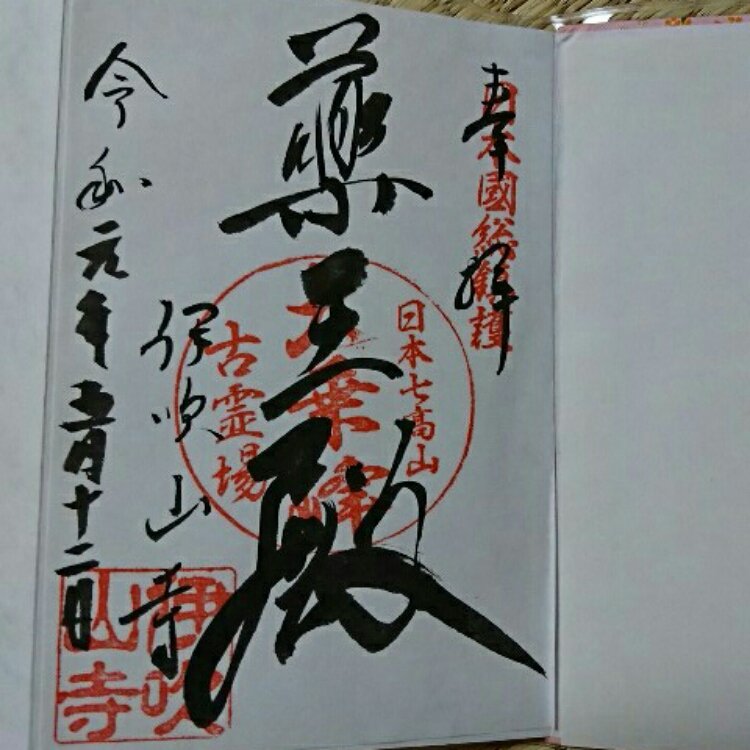 奉拝
日本國総鎮護
薬王殿
日本七高山
葉峰
古霊場
伊吹山寺
令和元年五月十二日
伊吹
山寺